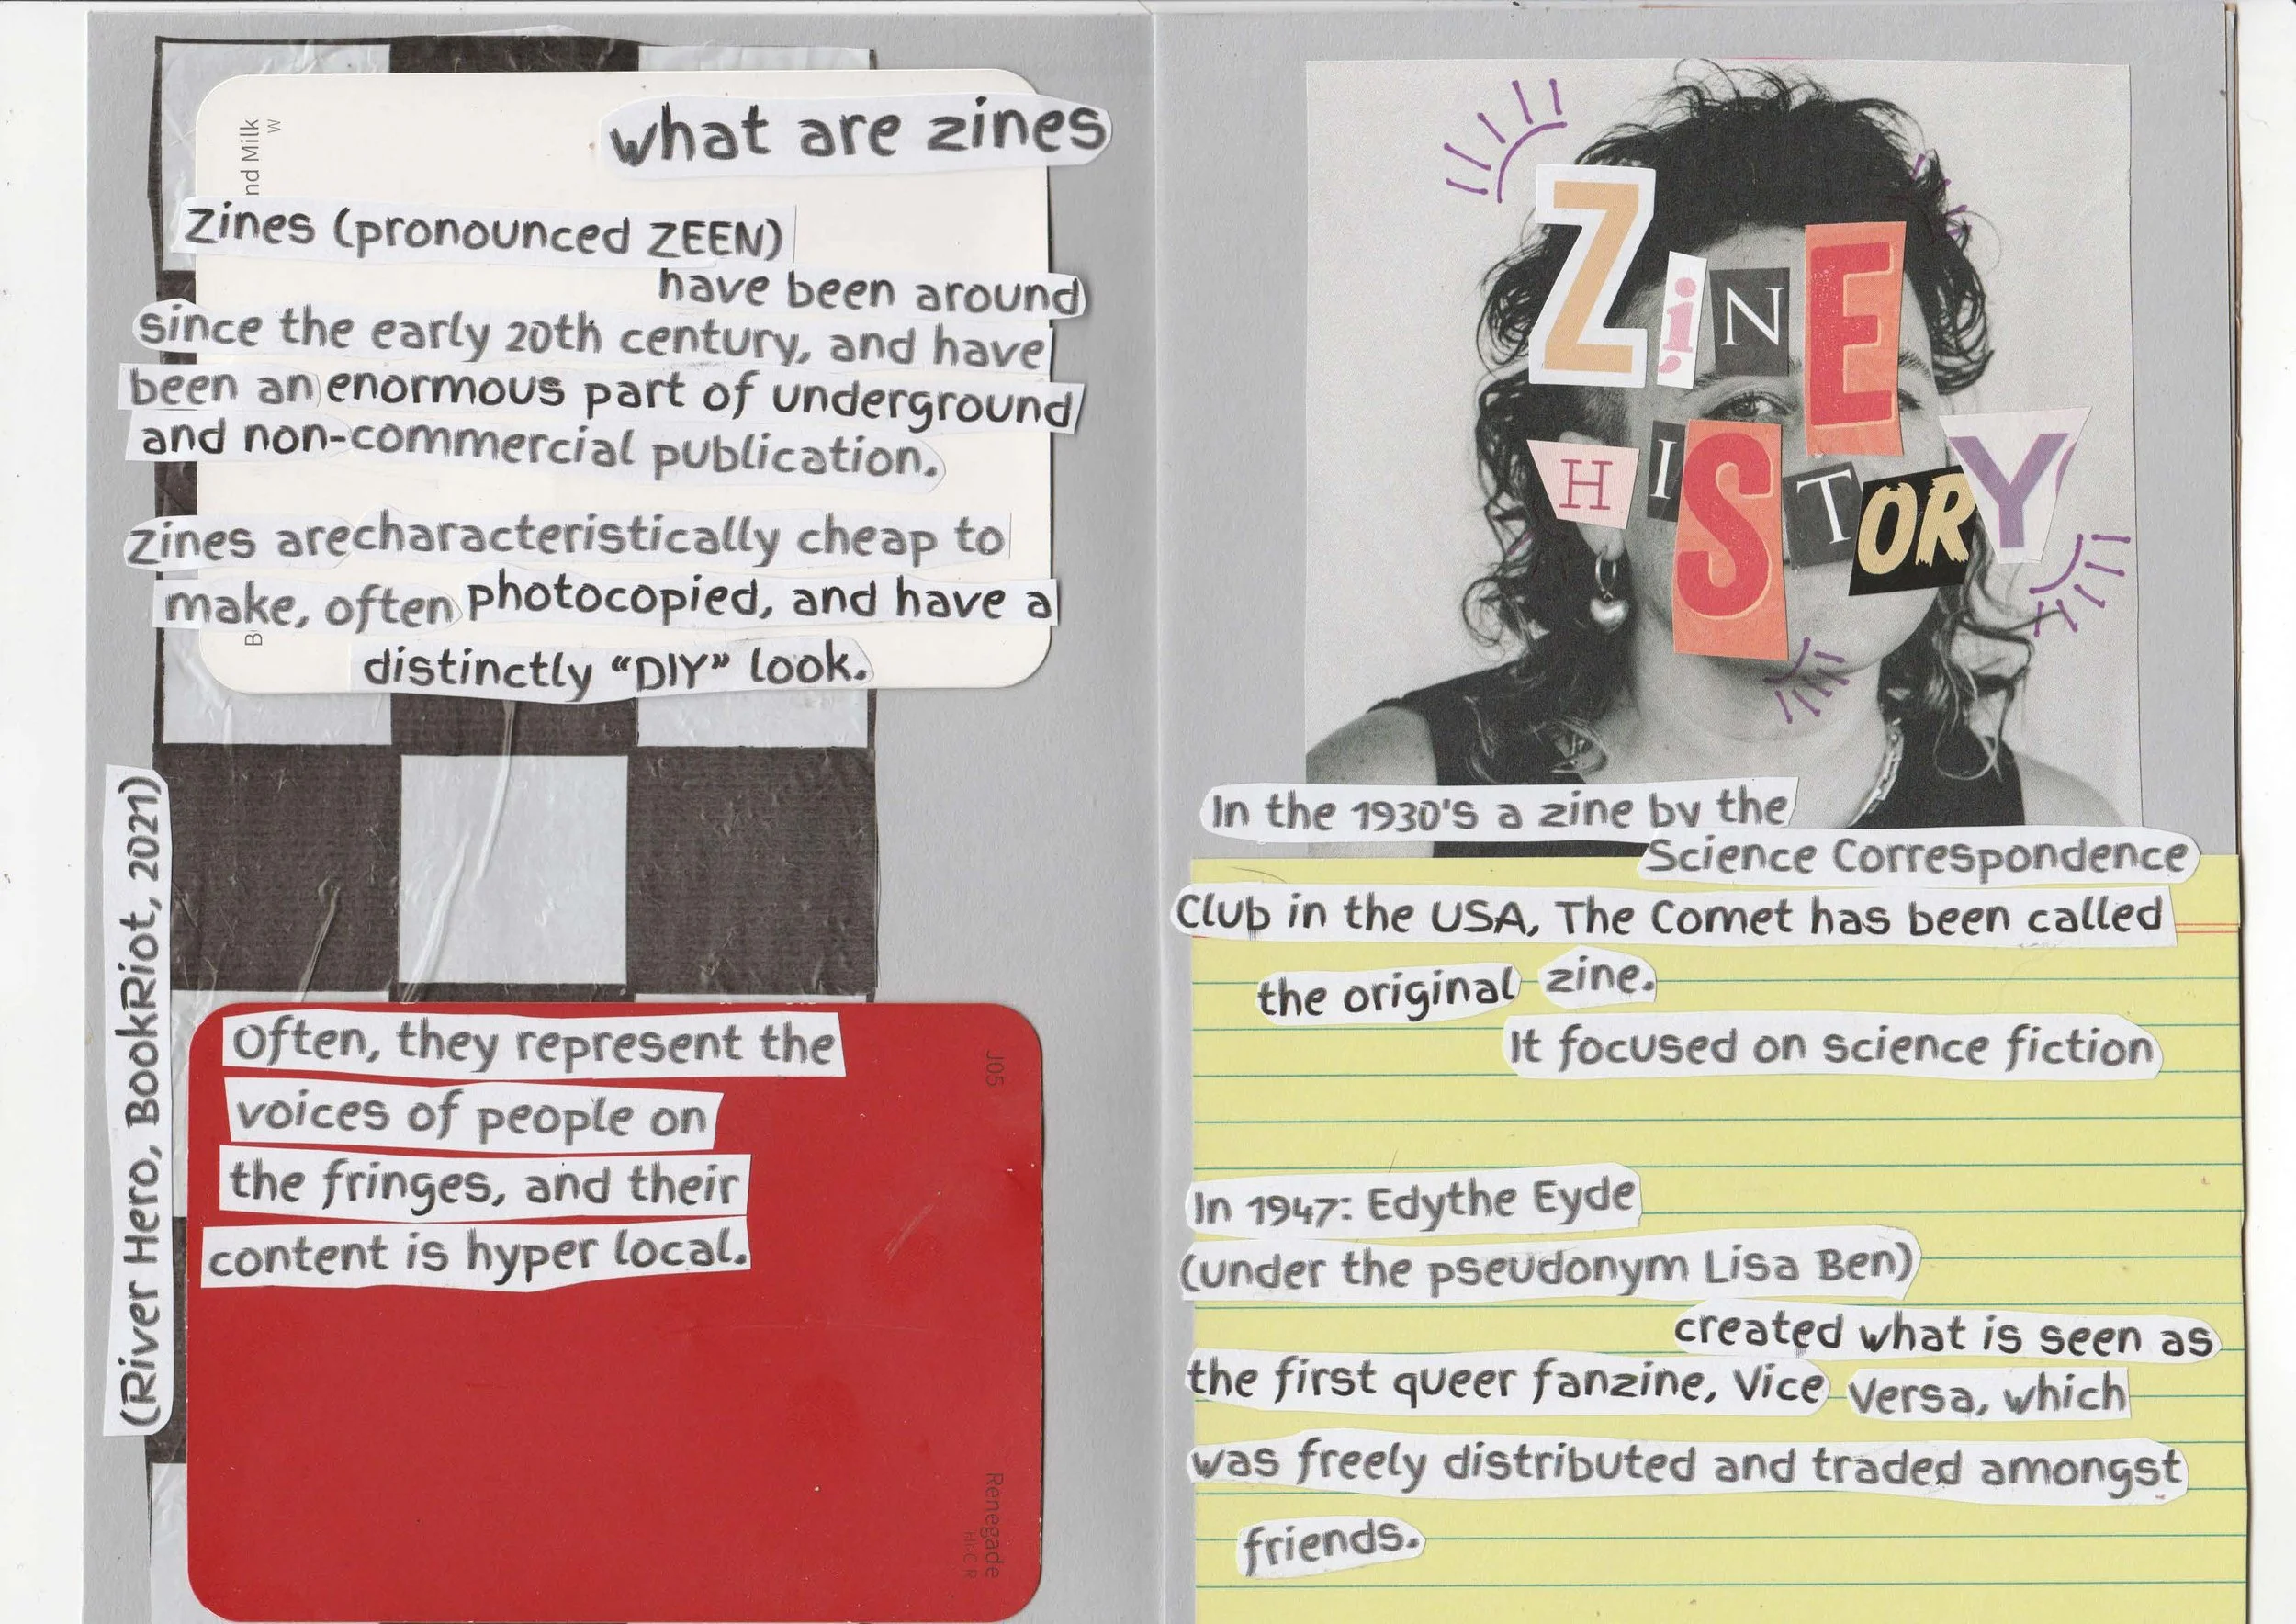 what are zines
nd Milk
W
B
Zines (pronounced ZEEN)
have been around
since the early 20th century, and have
been an enormous part of underground
and non-commercial publication.
Zines are characteristically cheap to
make, often photocopied, and have a
distinctly “DIY” look.
(River Hero, BookRiot, 2021)
Often, they represent the
voices of people on
the fringes, and their
content is hyper local.
J05
Renegade
ZiNE
HISTORY
In the 1930's a zine by the
Science Correspondence
Club in the USA, The Comet has been called
the original zine.
It focused on science fiction
In 1947: Edythe Eyde
(under the pseudonym Lisa Ben)
created what is seen as
the first queer fanzine, Vice Versa, which
was freely distributed and traded amongst
friends.